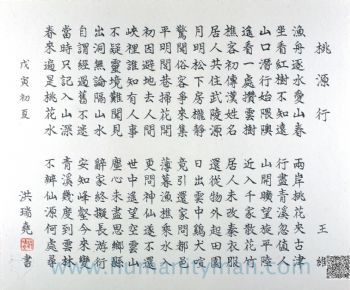 桃源行 王維
漁舟逐水愛山春 兩岸青溪夾古津
坐看紅樹不知遠 行盡青溪忽值人
山口潛行始隈隩 山開曠望旋平陸
遙看一處攢雲樹 近入千家散花竹
樵客初傳漢姓名 居人未改秦衣服
居人共住武陵源 還從物外起田園
月明松下房櫳靜 日出雲中鷄犬喧
驚聞俗客爭來集 竟引還家問都邑
平明閭巷掃花開 薄暮漁樵乘水入
初因避地去人間 更問神仙遂不還
峽裡誰知有人事 世中遙望空雲山
不疑靈境難聞見 塵心未盡思鄉縣
出洞無論隔山水 辭家終擬長游衍
自謂經過舊不迷 安知峰壑今來變
當時只記入山深 青溪幾度到雲林
春來遍是桃花水 不辨仙源何處尋
戊寅初夏 洪瑞堯書
www.humanityman.com